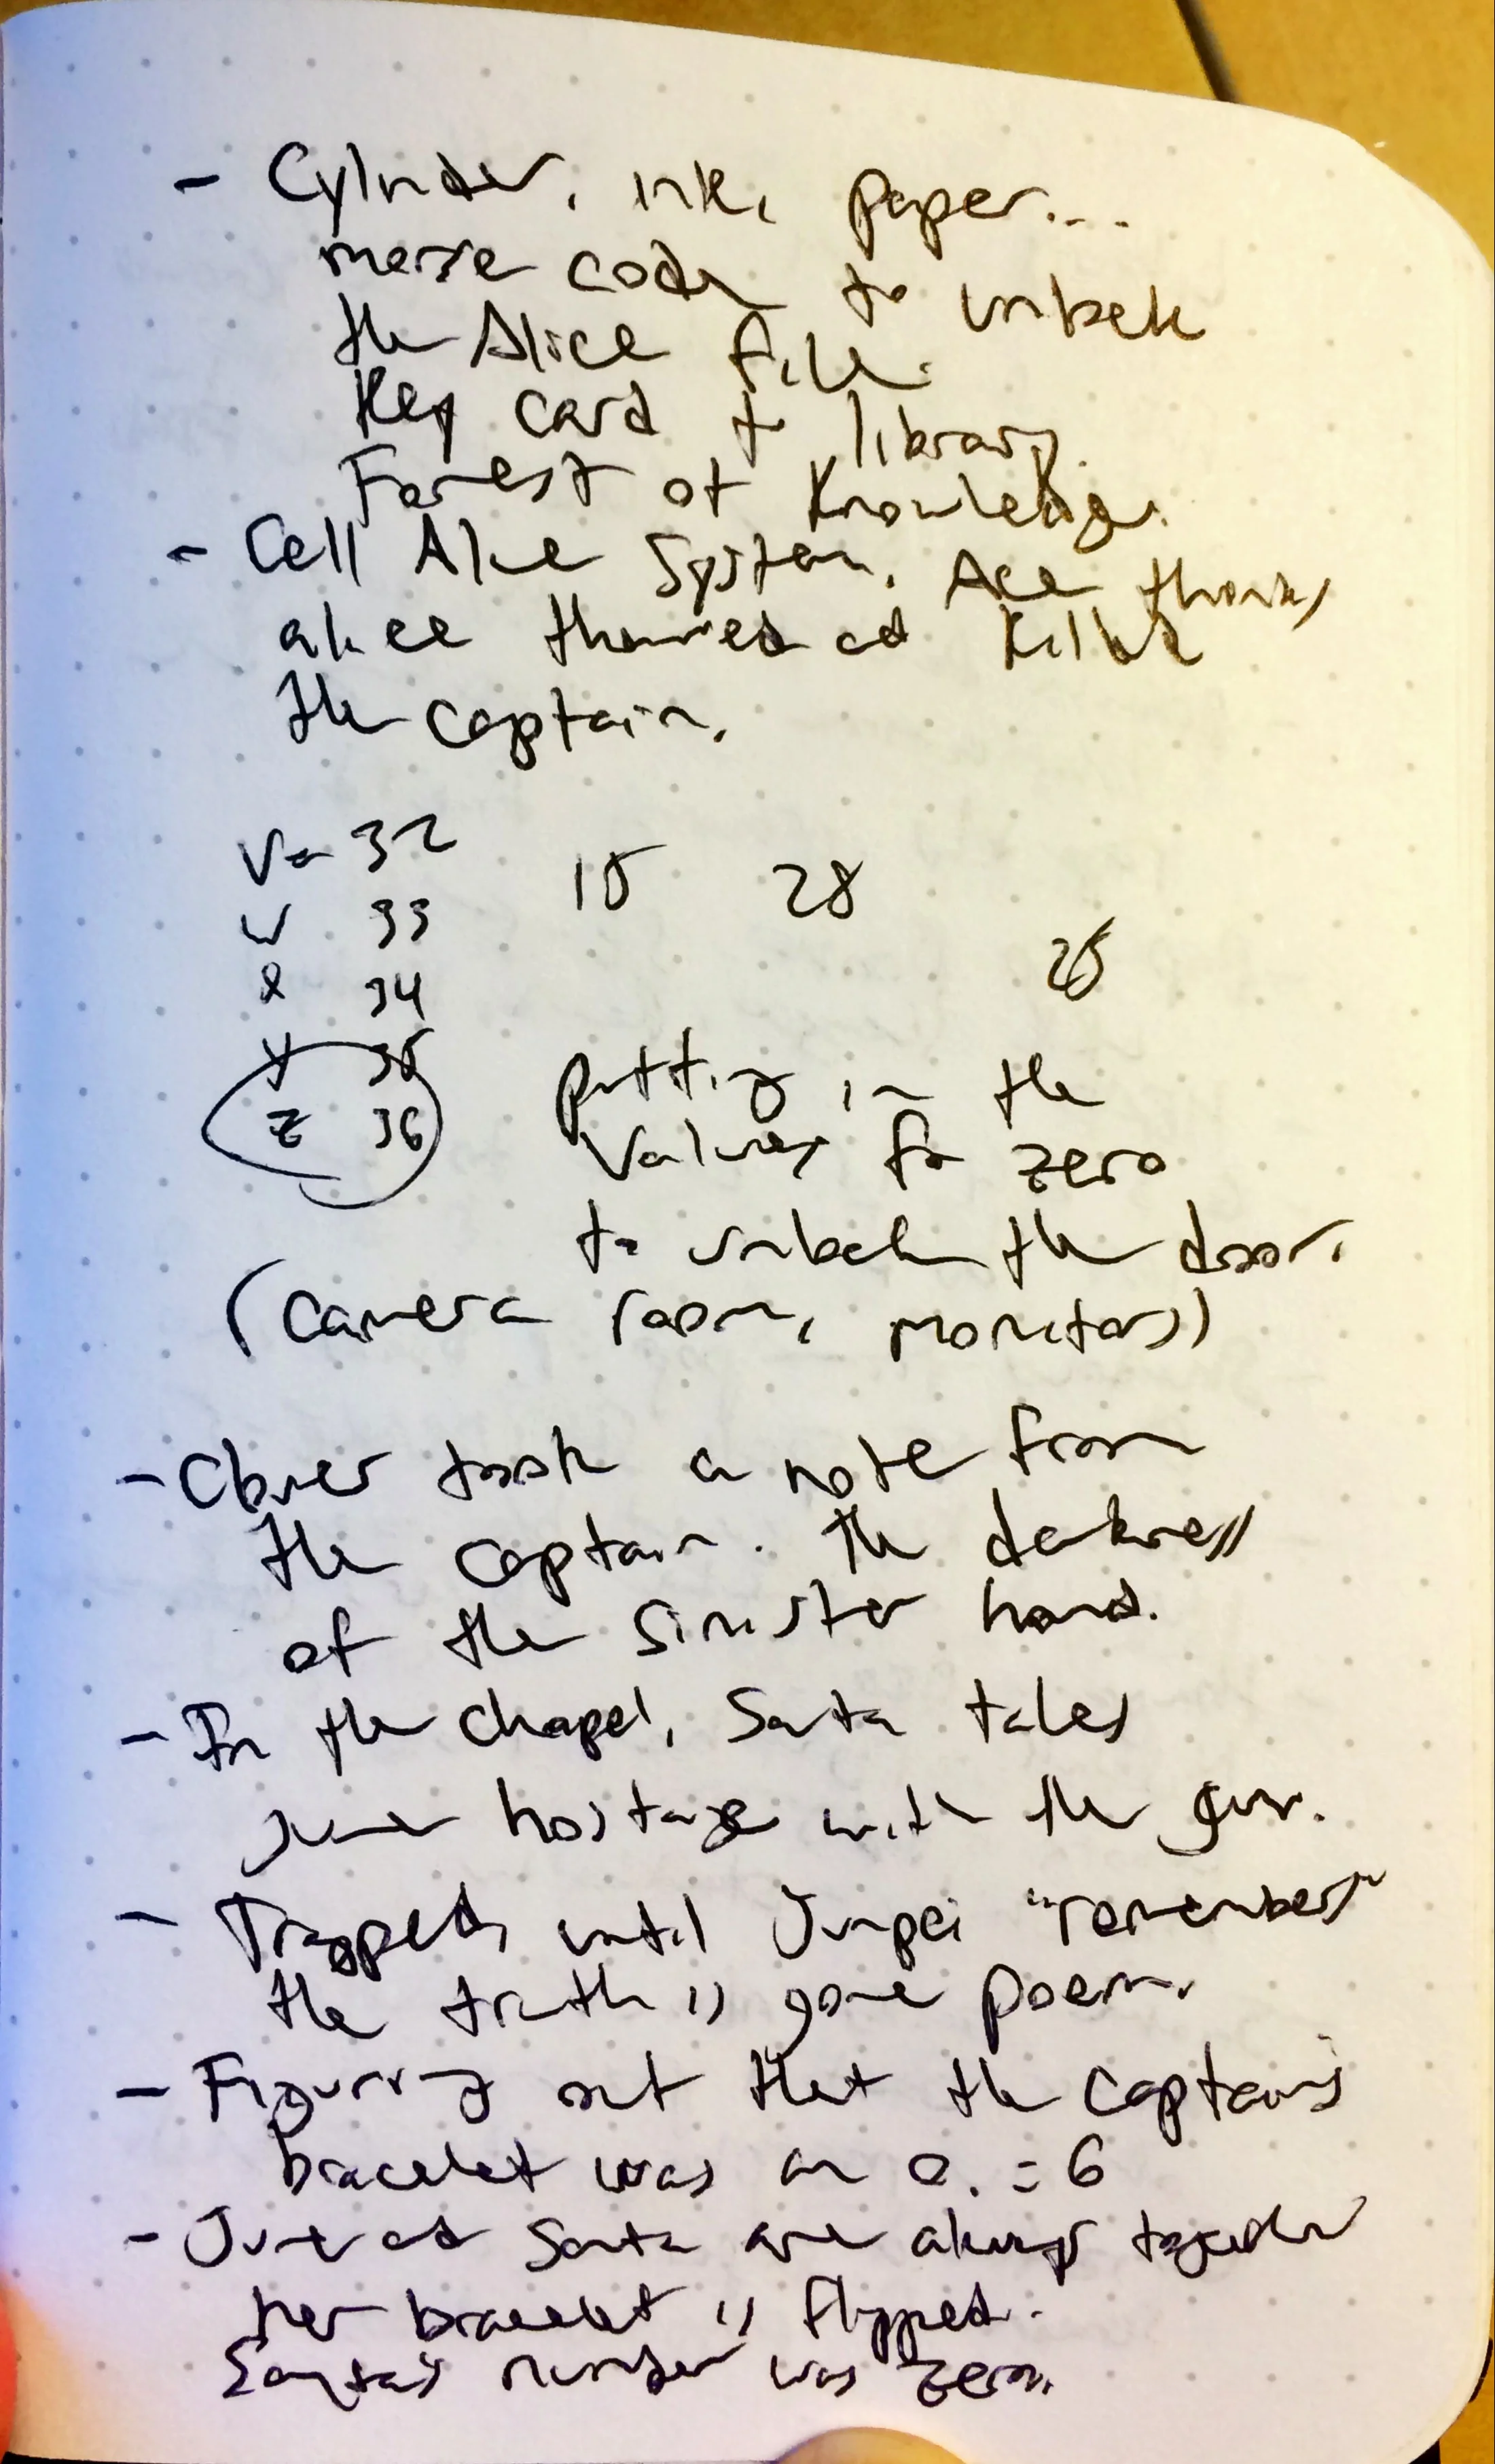 - Cylinder, ink, paper...
morse code to unlock
the Alice file.
Key card to library.
Forest of Knowledge.
- Cell Alive System. Ace thinks
alice thawed and killed
the captain.
V = 32 15 28
W 33
X 34 25
Y 35
Z 36
putting in the
values for zero
to unlock the door.
(Camera room, monitors)
- Clover took a note from
the captain. The darkness
of the sinister hand.
- In the chapel, Santa takes
June hostage with the gun.
- Trapped, until Junpei "remembers"
the truth is gone poem.
- Figuring out that the captain's
bracelet was an o. = 6
- June and Santa are always together
her bracelet is flipped.
Santa's number was zero.